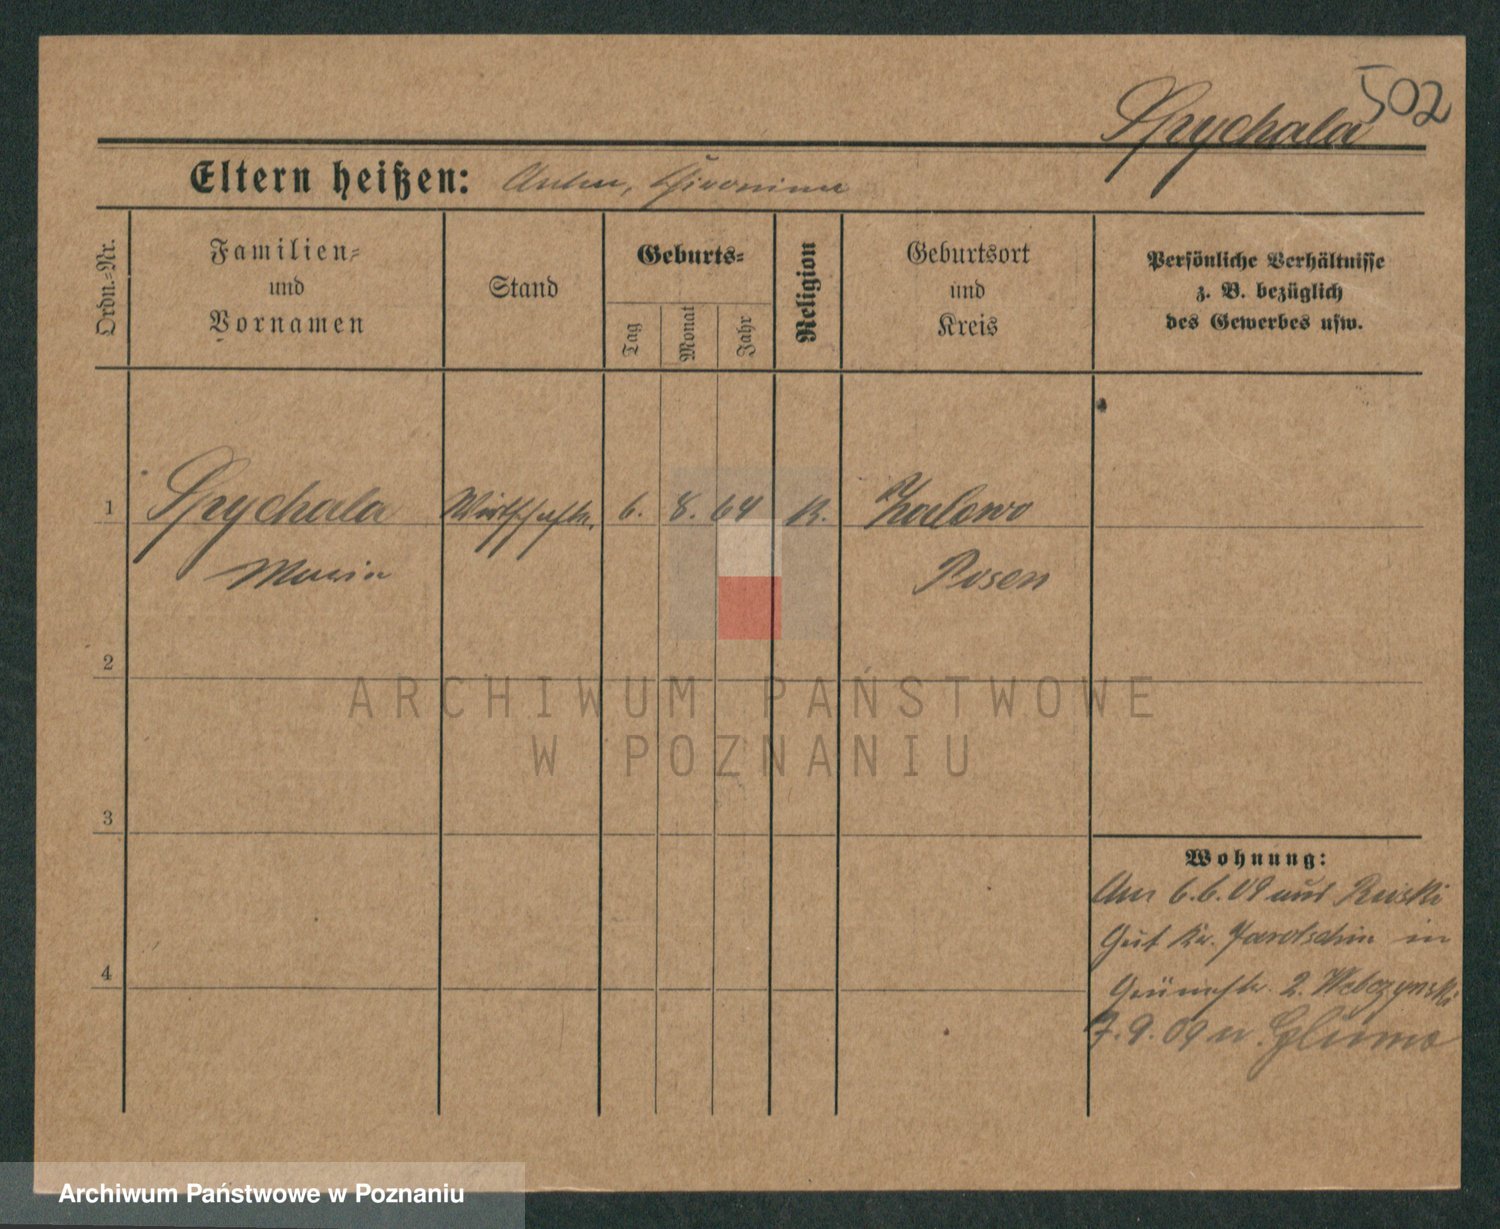 502
Spychala
Eltern heißen:
Ordn.-Nr.
Familien-
und
Vornamen
Stand
Geburts-
Tag
Monat
Jahr
Religion
Geburtsort
und
Kreis
Persönliche Verhältnisse
z. B. bezüglich
des Gewerbes usw.
1
Spychala 6. 8. 64 K.
Posen
2
ARCHIWUM PAŃSTWOWE
W POZNANIU
3
Wohnung:
6.6.09 aus Ruski
Gut Kr. Jarotschin in
4
2.
7.9.09 n.
Archiwum Państwowe w Poznaniu